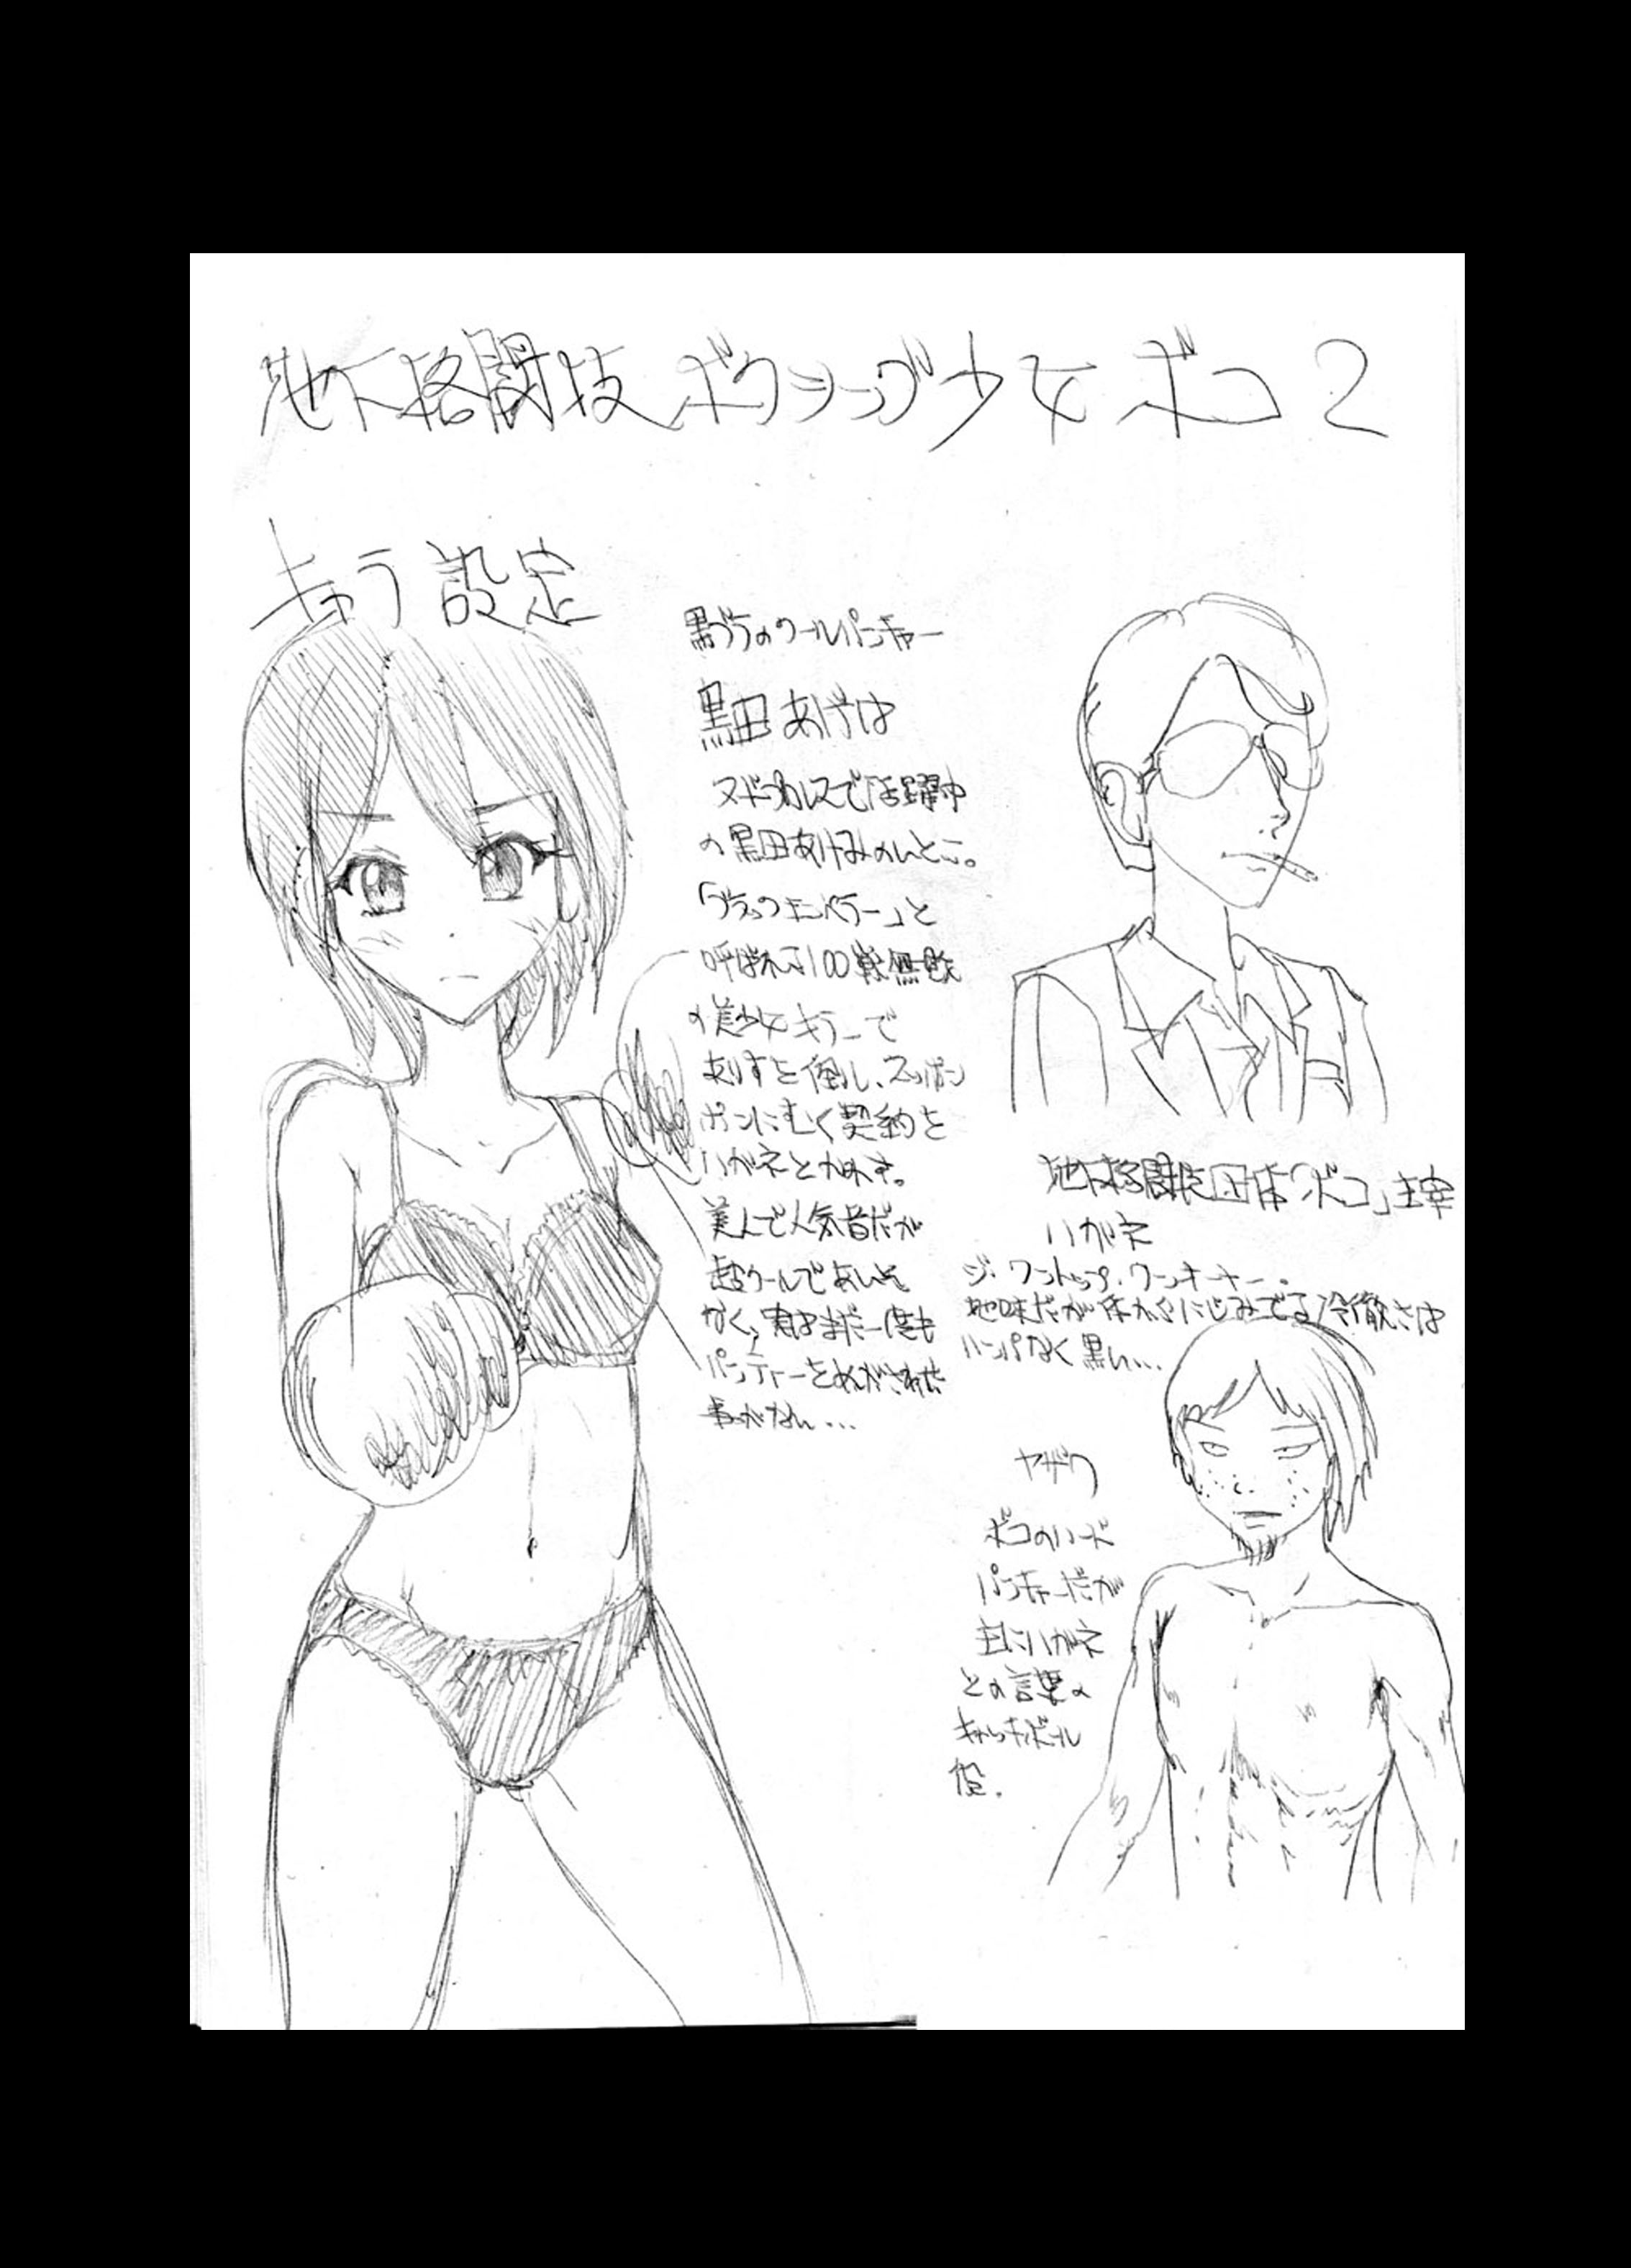 地下格闘技ボクシング少女ボコ2
設定
黒ブラのクールパンチャー
黒田あげは
ヌードプロレスで活躍中
の黒田あけみのいとこ。
「ブラックエンペラー」と
呼ばれる100戦無敗
の美少女キラーで
ありすを倒し、スッポン
ポンにむく契約を
ハガネとかわす。
美人で人気者だが
超クールであいそ
なく、実はまだ一度も
パンティーをぬがされた
事がない...
地下格闘技団体「ボコ」主宰
ハガネ
ジ・ワントップ・ワンオーナー。
地味だが体からにじみでる冷徹さは
ハンパなく黒い...
ヤザワ
ボコのハード
パンチャーだが
主にハガネ
との言葉の
キャッチボール
役.